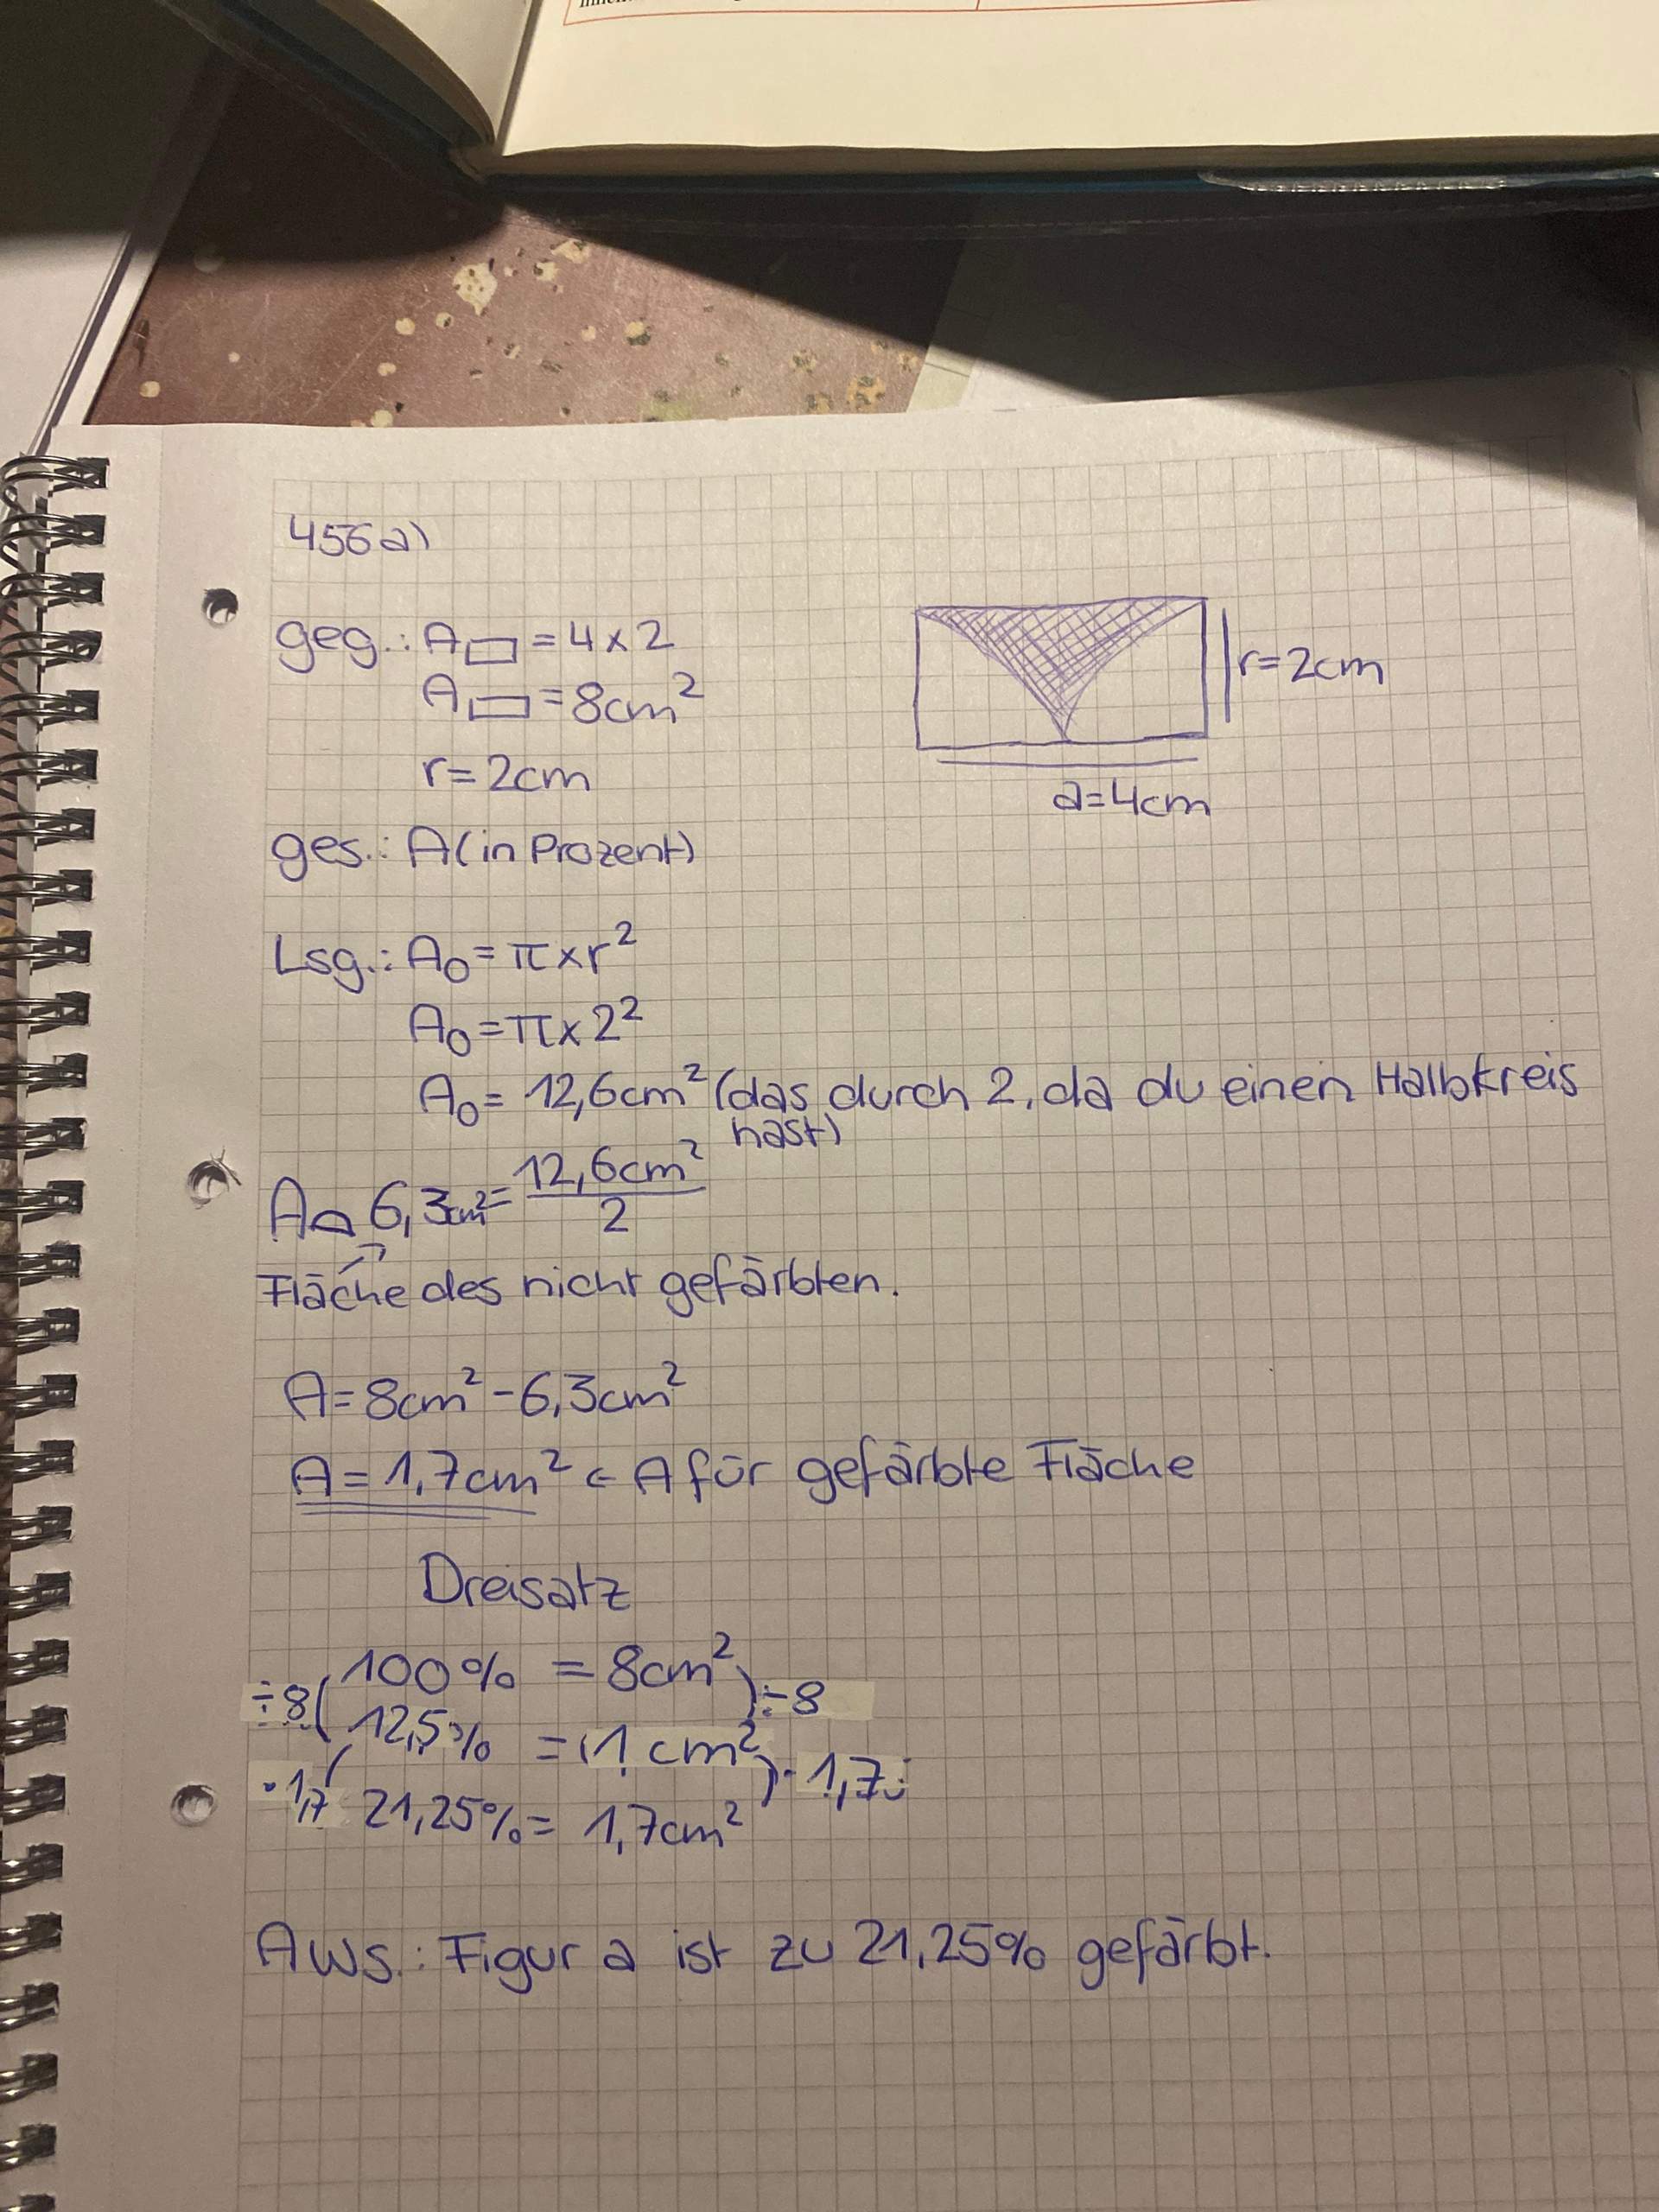 456a)
geg.: A▭ = 4 x 2
A▭ = 8cm²
r = 2cm
r = 2cm
a = 4cm
ges.: A (in Prozent)
Lsg.: A○ = π x r²
A○ = π x 2²
A○ = 12,6cm² (das durch 2, da du einen Halbkreis
hast)
A⌓ 6,3cm² = 12,6cm² / 2
Fläche des nicht gefärbten.
A = 8cm² - 6,3cm²
A = 1,7cm² ← A für gefärbte Fläche
Dreisatz
÷8 ( 100% = 8cm² ) ÷8
12,5% = 1 cm²
·1,7 ( 21,25% = 1,7cm² ) ·1,7
AWS.: Figur a ist zu 21,25% gefärbt.